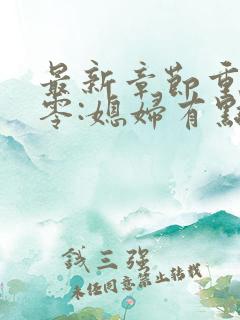 最新章節重
零:媳婦有點
錢三強
未經同意禁止轉載